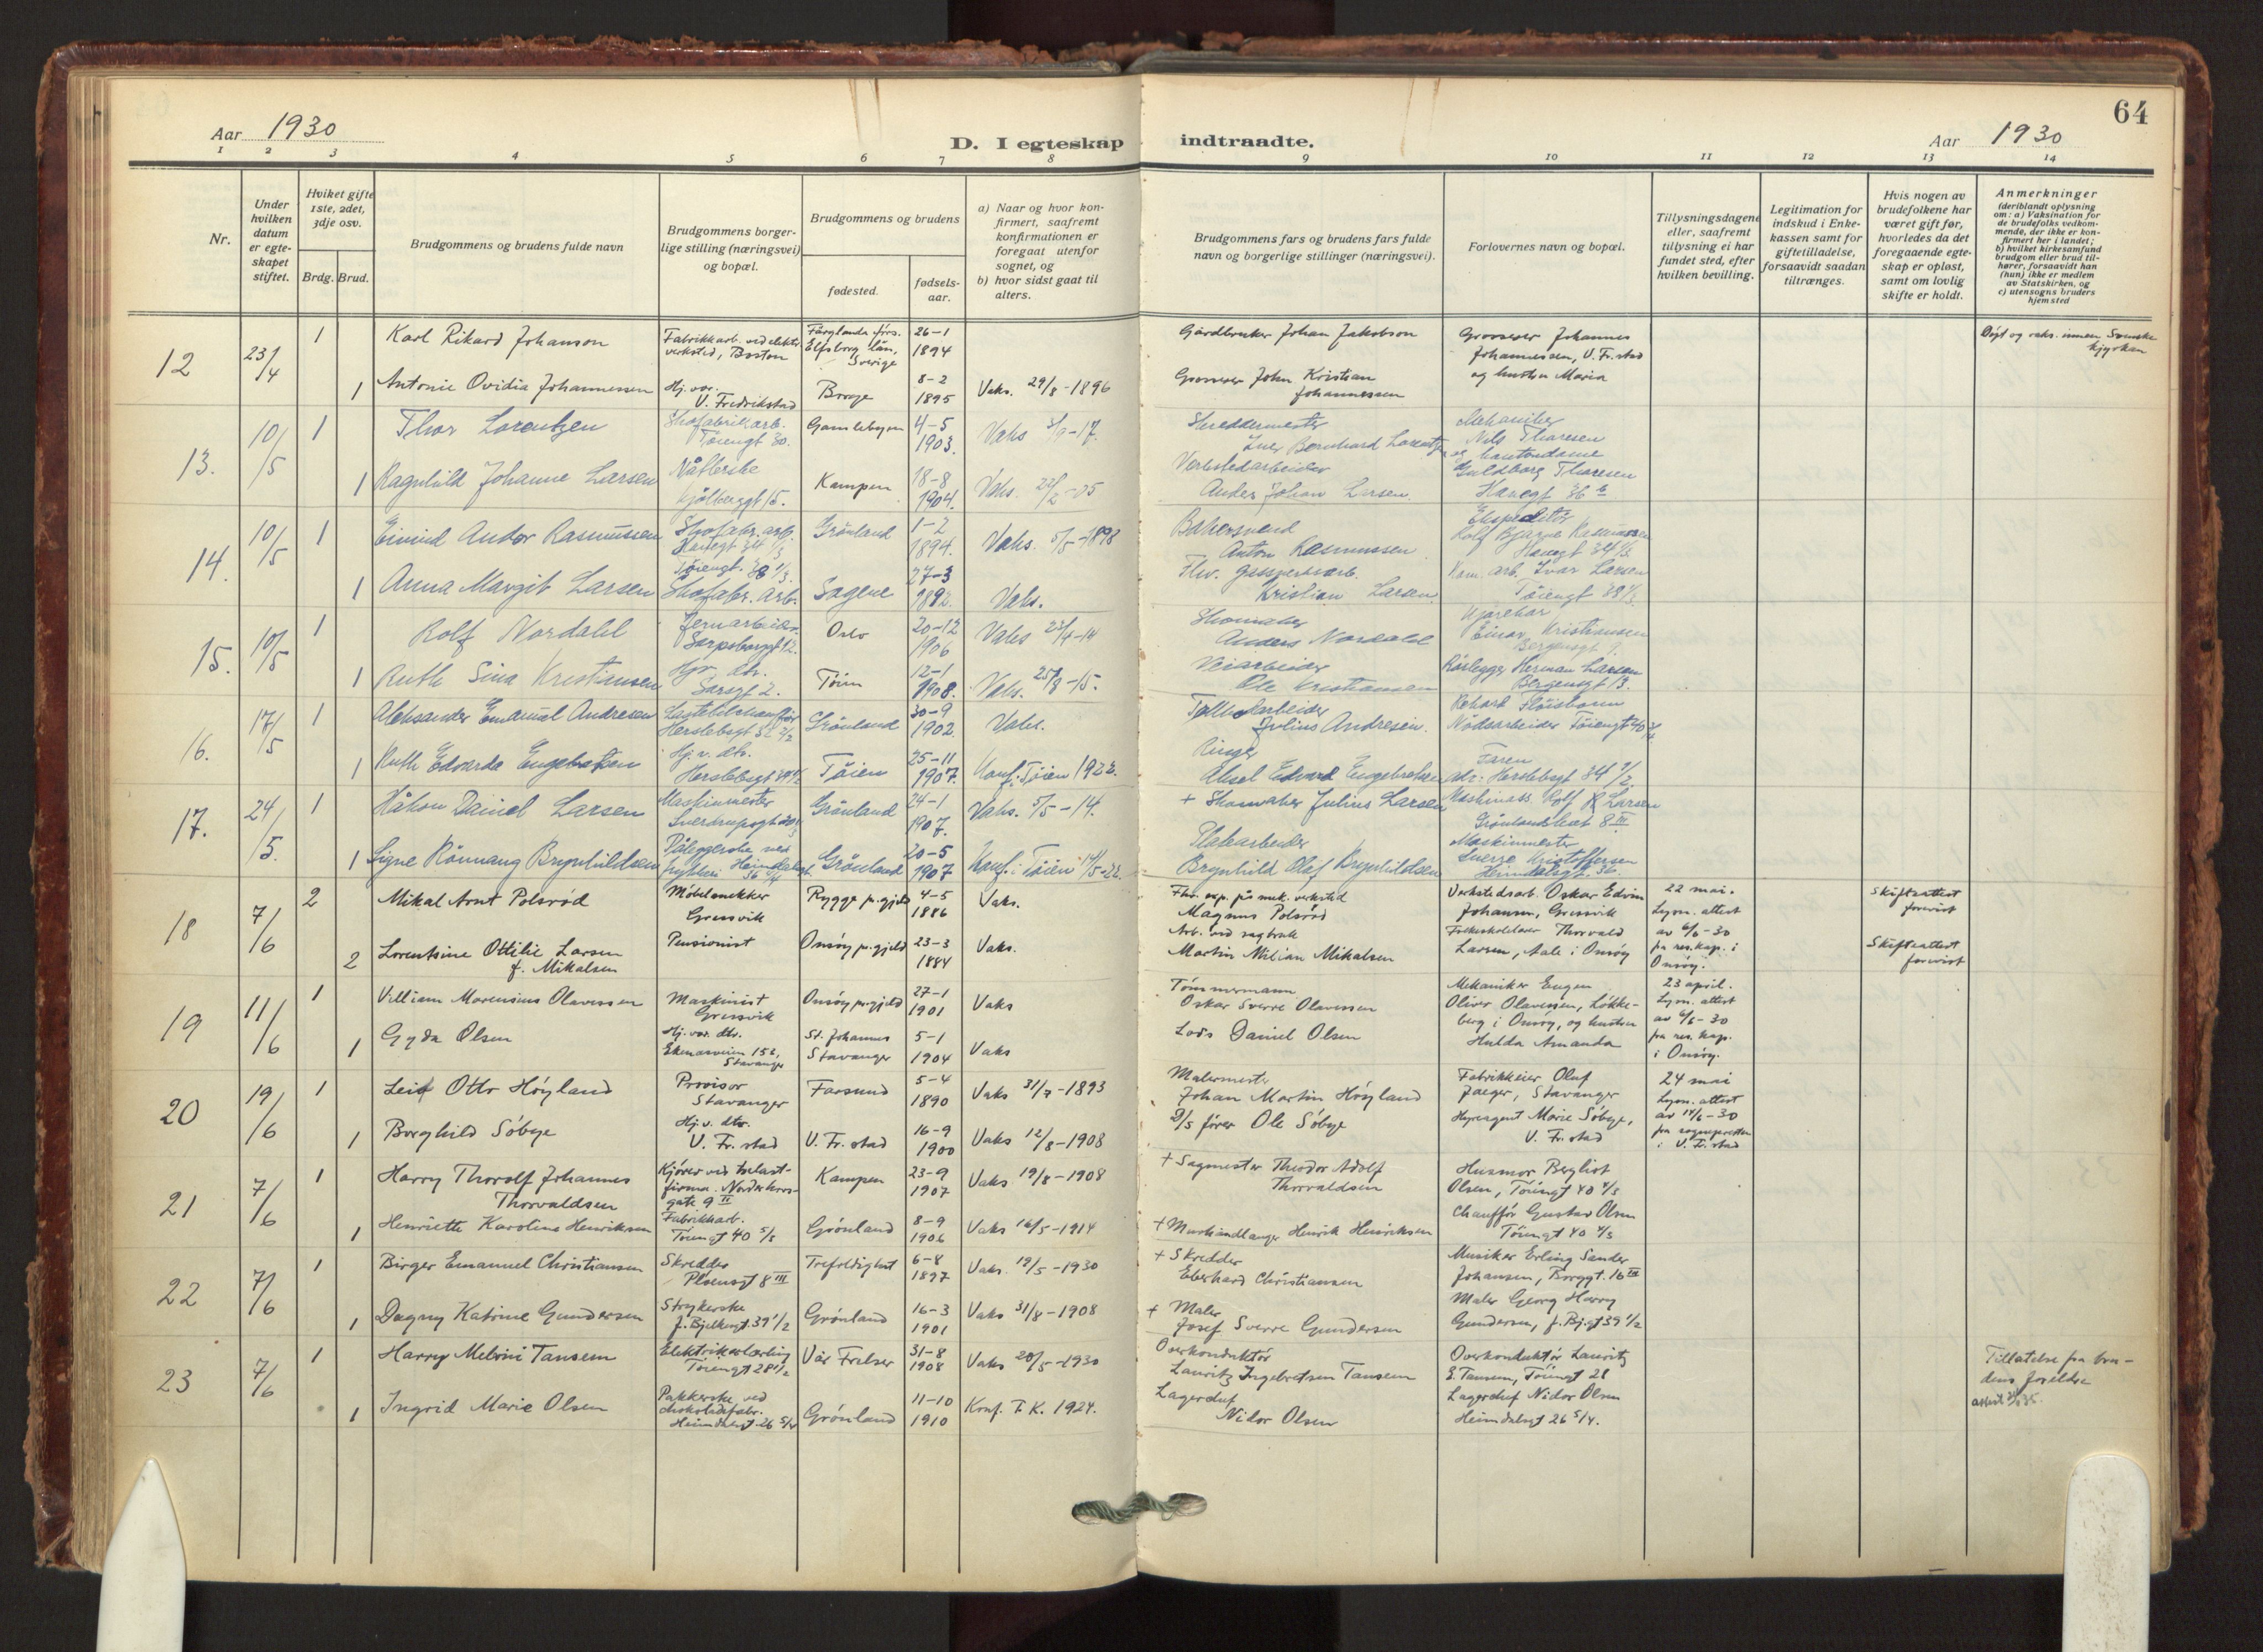 64
Aar 1930
D. I egteskap indtraadte.
Aar 1930
1 2 3 4 5 6 7 8 9 10 11 12 13 14
Nr.
Under hvilken datum er egteskapet stiftet.
Hviket gifte 1ste, 2det, 3dje osv.
Brdg. Brud.
Brudgommens og brudens fulde navn
Brudgommens borgerlige stilling (næringsvei) og bopæl.
Brudgommens og brudens
fødested.
fødselsaar.
a) Naar og hvor konfirmert, saafremt konfirmationen er foregaat utenfor sognet, og
b) hvor sidst gaat til alters.
Brudgommens fars og brudens fars fulde navn og borgerlige stillinger (næringsvei).
Forlovernes navn og bopæl.
Tillysningsdagene eller, saafremt tillysning ei har fundet sted, efter hvilken bevilling.
Legitimation for indskud i Enkekassen samt for giftetilladelse, forsaavidt saadan tiltrænges.
Hvis nogen av brudefolkene har været gift før, hvorledes da det foregaaende egteskap er opløst, samt om lovlig skifte er holdt.
Anmerkninger (deriblandt oplysning om: a) Vaksination for de brudefolks vedkommende, der ikke er konfirmert her i landet; b) hvilket kirkesamfund brudgom eller brud tilhører, forsaavidt han (hun) ikke er medlem av Statskirken, og c) utensogns bruders hjemsted
12 23/4 1 Karl Rikard Johanson Fabrikkarb. ved elektr. verksted, Boston Färglanda förs. Elfsborg län, Sverige 26-1 1894 Gårdbruker Johan Jakobson Grosserer Johannes Johannessen, V. Fr.stad og hustru Maria Døpt og vaks. innen Svenske kyrkan
1 Antonie Ovidia Johannessen Hj. vær. V. Fredrikstad Borge 8-2 1895 Vaks. 29/8-1896 Grosserer John Kristian Johannessen
13. 10/5 1 Thor Lorentzen Skofabrikarb. Tøiengt 30. Gamlebyen 4-5 1903. Vaks Skreddermester Bernhard Lorentzen Mekaniker Nils Thoresen og kontordame Guldborg Thoresen
1 Ragnhild Johanne Larsen Nåtlerske Kjølberggt 15. Kampen 18-8 1904. Vaks. Verkstedarbeider Anders Johan Larsen Hauegt 36
14. 10/5 1 Eivind Andor Rasmussen Skofabr. arb. Hauegt 34 1/3 Grønland 1-2 1894. Vaks. 5/5-1898 Bakersvend Anton Rasmussen Ekspeditør Rolf Bjarne Rasmussen Hauegt 34 1/3
1 Anna Margit Larsen Tøiengt. 38 1/3. Skofabr. arb. Sagene 27-3 1892. Vaks. Fhv. gassverksarb. Kristian Larsen Kom. arb. Ivar Larsen Tøiengt 38 1/3
15. 10/5 1 Rolf Nordahl Jernarbeider Sarpsborggt 12. Oslo 20-12 1906 Vaks 23/4-14 Skomaker Anders Nordahl Kjørekar Einar Kristiansen Bergensgt 9.
1 Ruth Sina Kristiansen Hj. v. dtr. Sarsgt 2. Tøien 12-1 1908. Vaks. 25/8-15. Veiarbeider Ole Kristiansen Rørlegger Herman Larsen Bergensgt 13.
16. 17/5 1 Aleksander Emanuel Andresen Lastebilchauffør Herslebsgt Grønland 30-9 1902. Vaks. Julius Andresen. Rikard Nødsarbeider Tøiengt
1 Ruth Edvarda Engebretsen Hj. v. dtr. Herslebsgt Tøien 25-11 1907. Konf. Tøien 1922. Ringer Aksel Edvard Engebretsen Faren adr: Herslebsgt 34 1/2
17. 24/5. 1 Håkon Daniel Larsen Maskinmester Sverdrupsgt Grønland 24-1 1907. Vaks. 5/5-14. + Skomaker Julius Larsen Maskinass. Rolf R Larsen Grønlandsleret 8 III.
1 Signe Rønnaug Brynhildsen Påleggerske ved trykkeri Heimdalsgt 36 Grønland 20-5 1907 Konf. i Tøien 14/5-22. Platearbeider Brynhild Olaf Brynhildsen Maskinmester Sverre Kristoffersen Heimdalsgt. 36.
18 7/6 2 Mikal Arnt Polsrød Møbelsnekker Gressvik Rygge pr.gjeld 4-5 1886 Vaks. Fhv. esp. på mek. verksted Magnus Polsrød Verkstedsarb. Oskar Edvin Johansen, Gressvik 22 mai. Lysn. attest av 6/6-30 fra res. kap. i Onsøy. Skifteattest forevist
2 Lorentsine Ottilie Larsen f. Mikalsen Pensionist Onsøy pr.gjeld 23-3 1884 Vaks. Arb. ved sagbruk Martin Milian Mikalsen Folkeskolelærer Thorvald Larsen, Aale i Onsøy Skifteattest forevist
19 11/6 1 William Marensius Olavessen Maskinist Gressvik Onsøy pr.gjeld 27-1 1901 Vaks Tømmermann Oskar Sverre Olavessen Mekaniker Eugen Oliver Olavessen, Løkkeberg i Onsøy, og hustru Hulda Amanda 23 april. Lysn. attest av 6/6-30 fra res. kap. i Onsøy.
1 Gyda Olsen Hj. vær. dtr. Ekenæsveien 152, Stavanger St. Johannes Stavanger 5-1 1904 Vaks Lods Daniel Olsen
20 19/6 1 Leif Otto Høyland Provisor Stavanger Farsund 5-4 1890 Vaks 31/7-1893 Malermester Johan Martin Høyland Fabrikkeier Olaf Jaeger, Stavanger 24 mai Lysn. attest av 14/6-30 fra sognepresten i V. Fr.stad
1 Borghild Søbye Hj. v. dtr. V. Fr.stad V. Fr.stad 16-9 1900 Vaks 12/8-1908 D/S fører Ole Søbye Hyreagent Marie Søbye, V. Fr.stad
21 7/6 1 Harry Thorolf Johannes Thorvaldsen Kjører ved trelastfirma. Norderhovsgate 9 II Kampen 23-9 1907 Vaks 19/8-1908 + Sagmester Theodor Adolf Thorvaldsen Husmor Bergliot Olsen, Tøiengt 40 4/3
1 Henriette Karoline Henriksen Fabrikkarb. Tøiengt 40 5/3 Grønland 8-9 1906 Vaks 16/5-1914 + Murhandlanger Henrik Henriksen Chauffør Gustav Olsen Tøiengt 40 4/3
22 7/6 1 Birger Emanuel Christiansen Skredder Pløensgt 8 III Trefoldighet 6-8 1897 Vaks. 19/5-1930 + Skredder Eberhard Christiansen Musiker Erling Sander Johansen, Borggt. 16 III
1 Dagny Katrine Gundersen Strykerske J. Bjelkesgt. 39 1/2 Grønland 16-3 1901 Vaks 31/8-1908 + Maler Josef Sverre Gundersen Maler Georg Harry Gundersen, J. Bj.gt 39 1/2
23 7/6 1 Harry Melvin Tansem Elektrikerlærling Tøiengt 28 1/2 Vår Frelser 31-8 1908 Vaks 20/5-1930 Overkonduktør Lauritz Ingebretsen Tansem Overkonduktør Lauritz I. Tansem, Tøiengt 28 Tillatelse fra brudens foreldre
1 Ingrid Marie Olsen Pakkerske ved chokoladefabr. Heimdalsgt 26 5/4 Grønland 11-10 1910 Konf. T. K. 1924. Lagerchef Nidor Olsen Lagerchef Nidor Olsen Heimdalsgt 26 5/4.